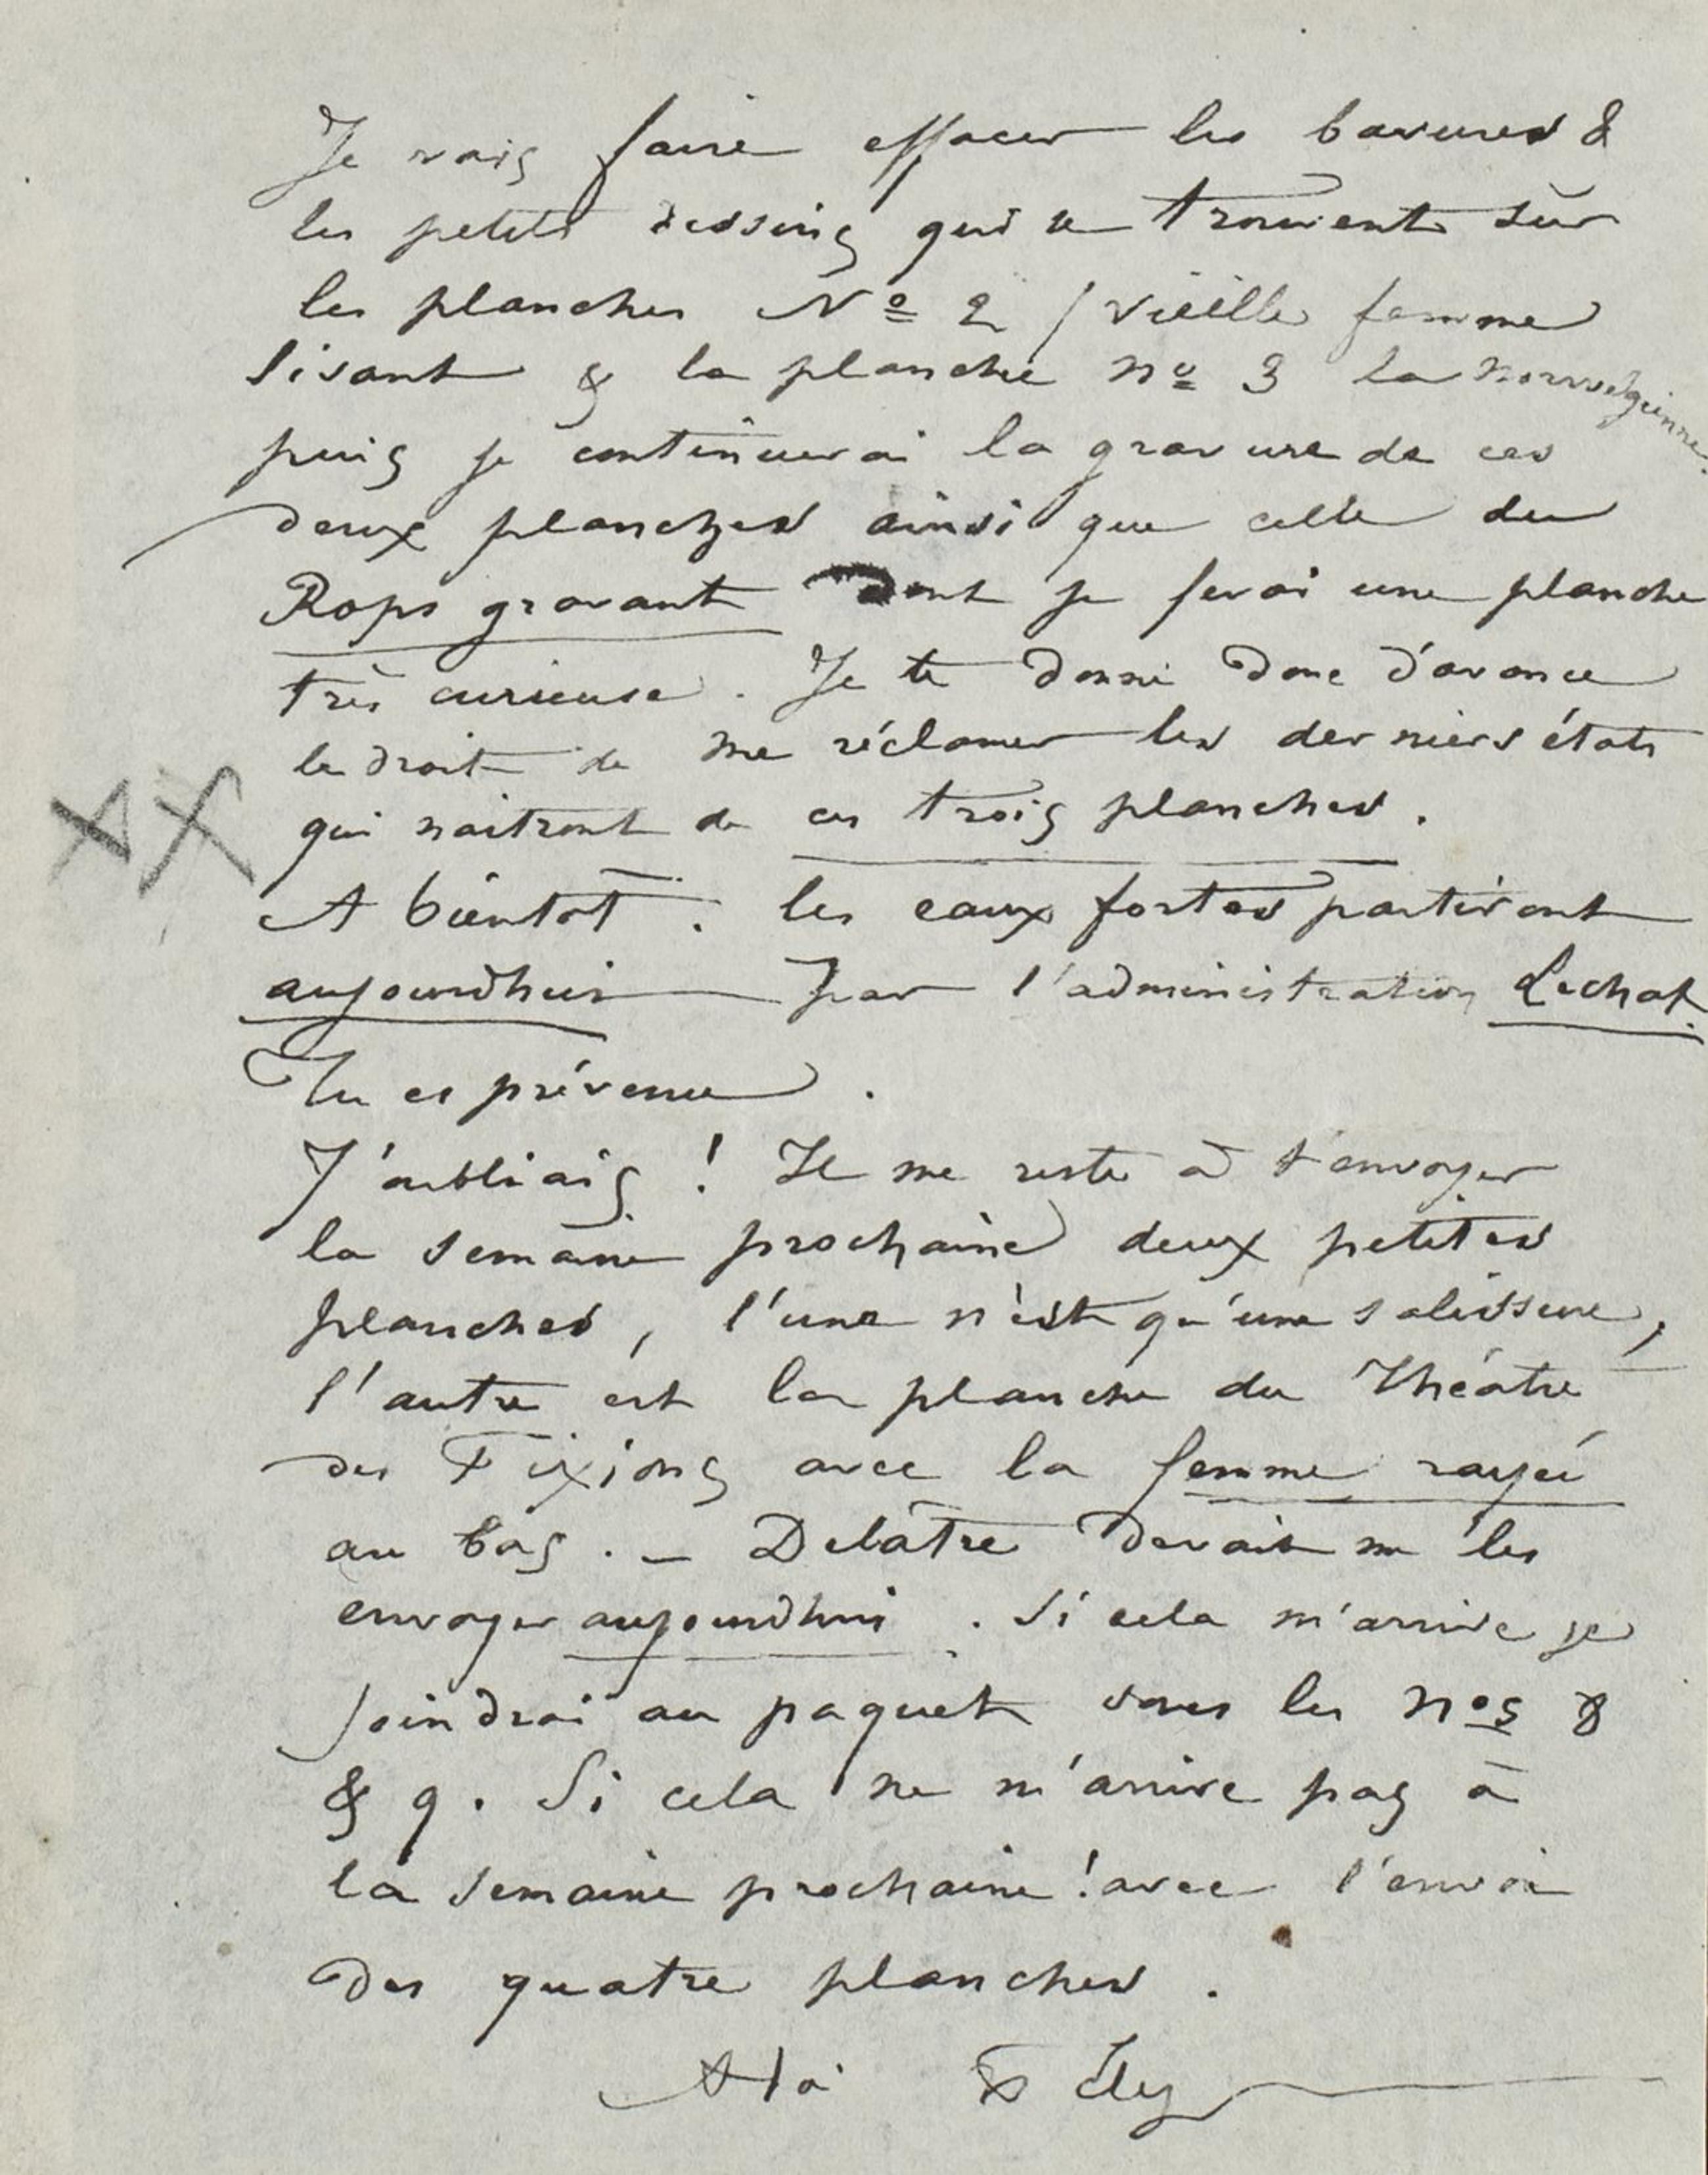 Je vais faire effacer les bavures &
les petits dessins qui se trouvent sur
les planches Nº 2 / vieille femme
lisant & la planche nº 3 la norwégienne.
puis je continuerai la gravure de ces
deux planches ainsi que celle du
Rops gravant dont je ferai une planche
très curieuse. Je te donne donc d'avance
le droit de me réclamer les derniers états
qui naitront de ces trois planches.
A bientôt. les eaux fortes partiront
aujourdhui par l'administration Lechat.
Tu es prévenu.
J'oubliais ! Il me reste à t'envoyer
la semaine prochaine deux petites
planches, l'une n'est qu'une salissure,
l'autre est la planche du Théâtre
des Fixions avec la femme rayée
au bas. — Delâtre devait me les
envoyer aujourdhui. Si cela m'arrive je
joindrai au paquet sous les nos 8
& 9. Si cela ne m'arrive pas à
la semaine prochaine ! avec l'envoi
des quatre planches.
A toi Fély